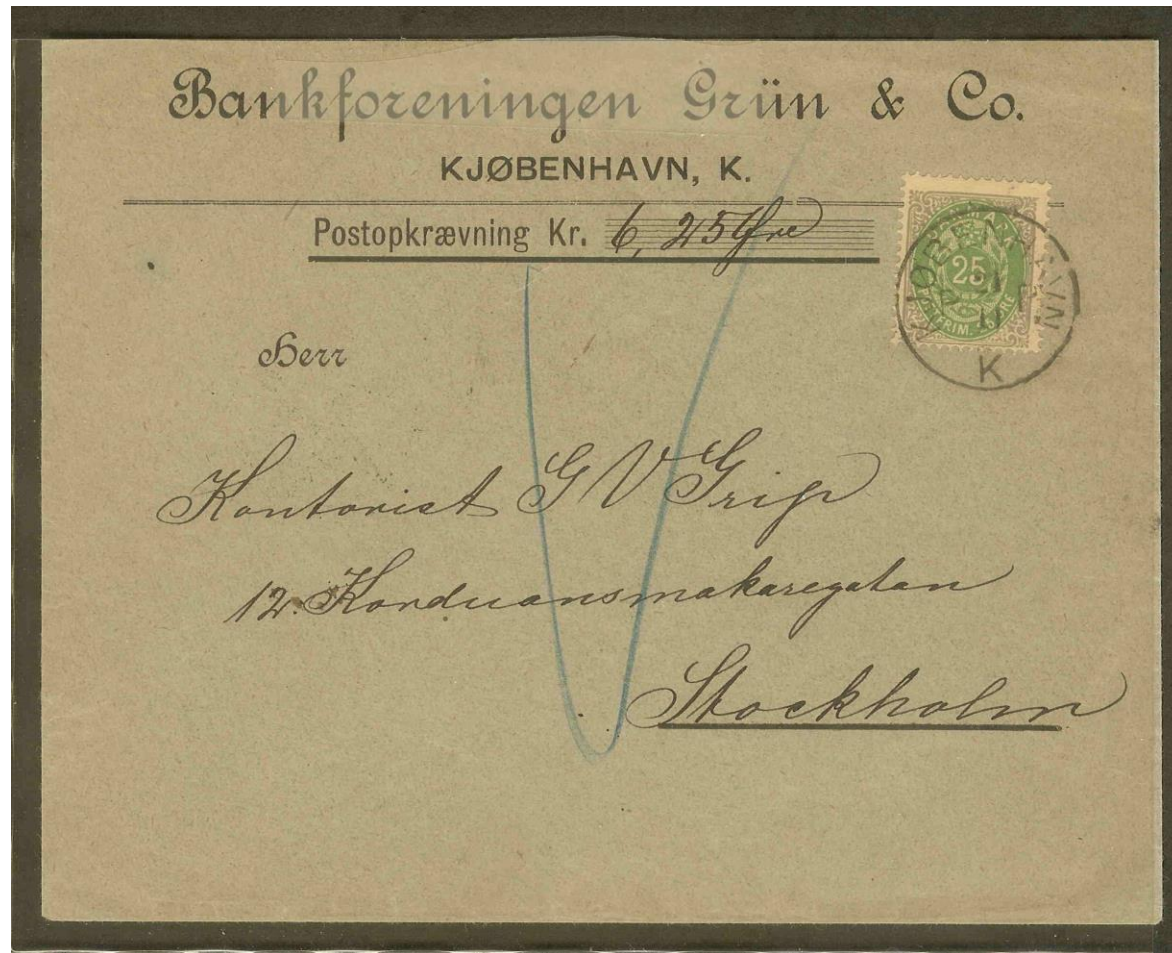 Bankforeningen Grün & Co.
KJØBENHAVN, K.
Postopkrævning Kr. 6,25 Øre
25
KJØBENHAVN
K
Herr
Kontorist G V Grip
12. Korduansmakaregatan
Stockholm